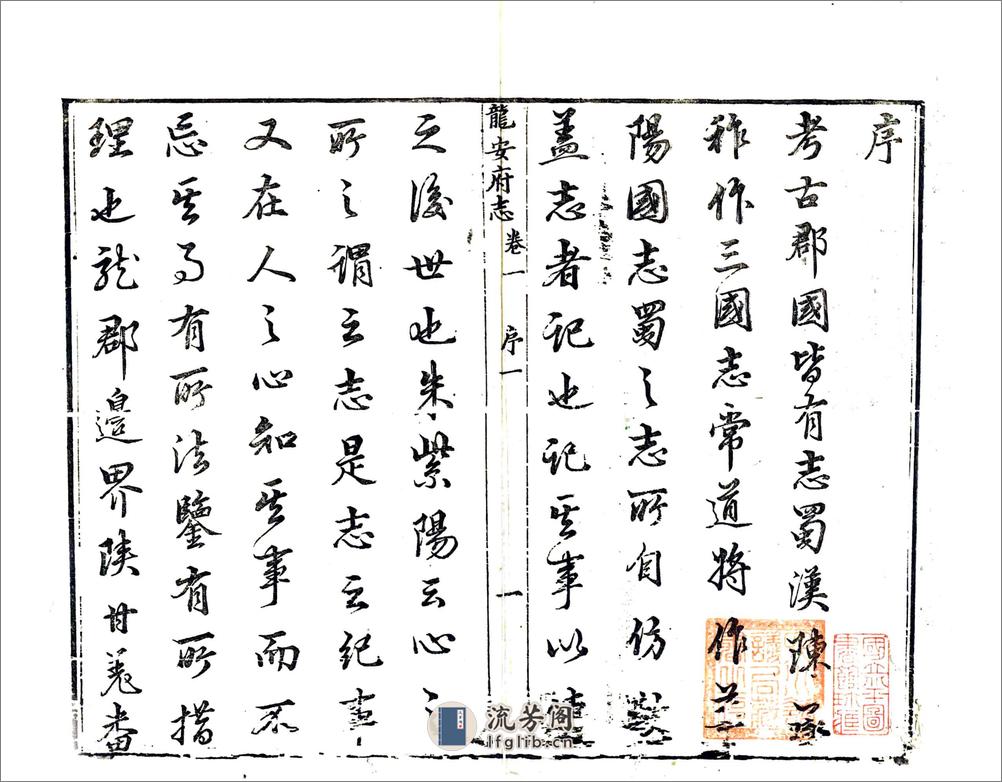 序
考古郡國皆有志蜀漢陳承
祚作三國志常道將作華
陽國志蜀之志所自仿歟
蓋志者記也記其事以
龍安府志 卷一 序一 一
之後世也朱紫陽云心之
所之謂之志是志之紀事
又在人之心知其事而不
忘其有所法鑒有所措
理也龍郡邊界陝甘羌番
國立北平圖書館珍藏
流芳阁
lfglib.cn